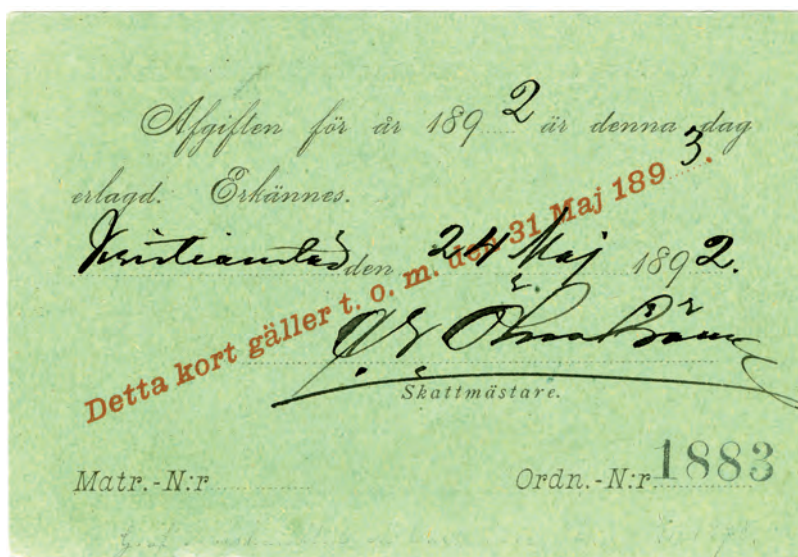 Afgiften för år 1892 är denna dag
erlagd. Erkännes.
Kristianstad den 24 Maj 1892.
Detta kort gäller t. o. m. den 31 Maj 1893.
Skattmästare.
Matr.-N:r
Ordn.-N:r 1883